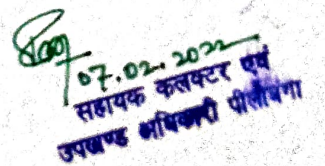 07.02.2022
सहायक कलक्टर एवं
उपखण्ड अधिकारी पीलीबंगा